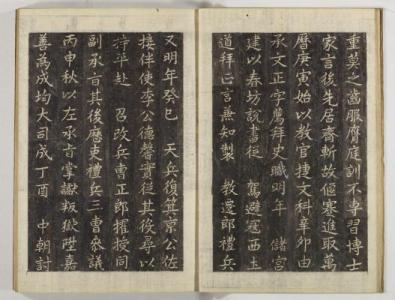 重莫之齒服膺庭訓不專習博士
家言後先居齋斬故偃蹇進取萬
曆庚寅始以教官捷文科辛卯由
承文正字薦拜史職明年 儲宮
建以春坊說書從 駕避寇西土
道拜正言兼知製 教還郎禮兵
又明年癸巳 天兵復箕京公佐
接伴使李公德馨實從其後尋以
持平赴 召改兵曹正郎擢授同
副承旨其後歷吏禮兵三曹參議
丙申秋以左承旨掌讞叛獄陞嘉
善爲成均大司成丁酉 中朝討